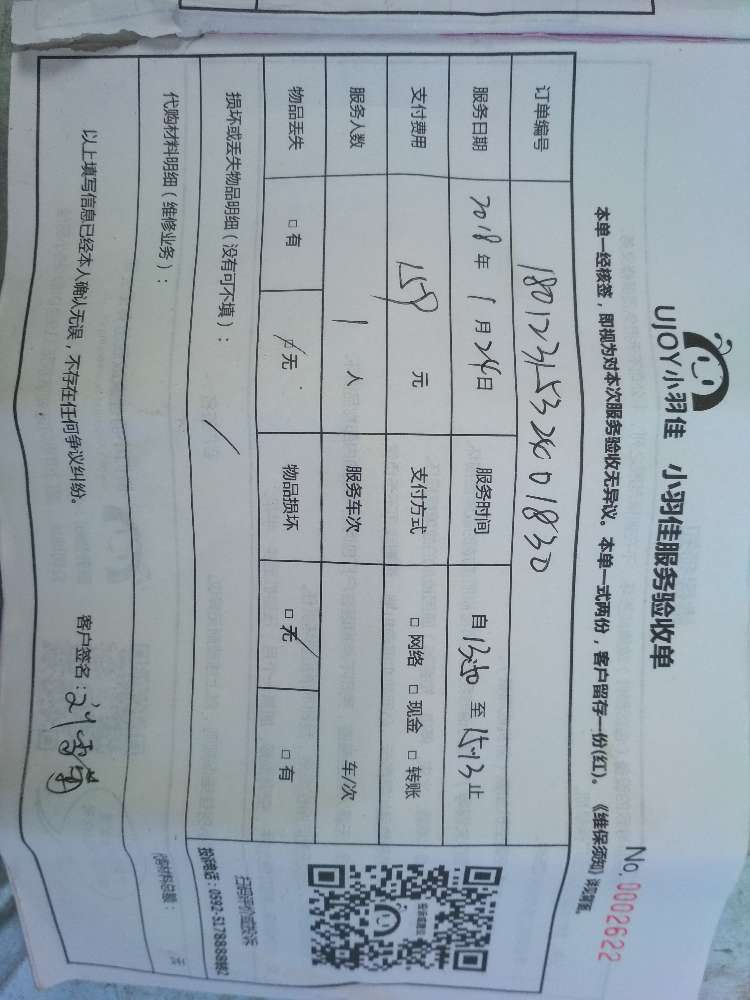 UJOY小羽佳 小羽佳服务验收单
No. 0002622
本单一经核签，即视为对本次服务验收无异议。本单一式两份，客户留存一份(红)。《维保须知》详见背面。
订单编号 18012315328001830
服务日期 2018年1月24日 服务时间 自13:50至15:13止
支付费用 158元 支付方式 □网络 □现金 □转账
服务人数 1人 服务车次 车/次
物品丢失 □有 □无 物品损坏 □无 □有
损坏或丢失物品明细（没有可不填）： /
扫码评价或投诉
投诉电话：0592-5178888转2
代购材料明细（维修业务）：
元
以上填写信息已经本人确认无误，不存在任何争议纠纷。 客户签名：